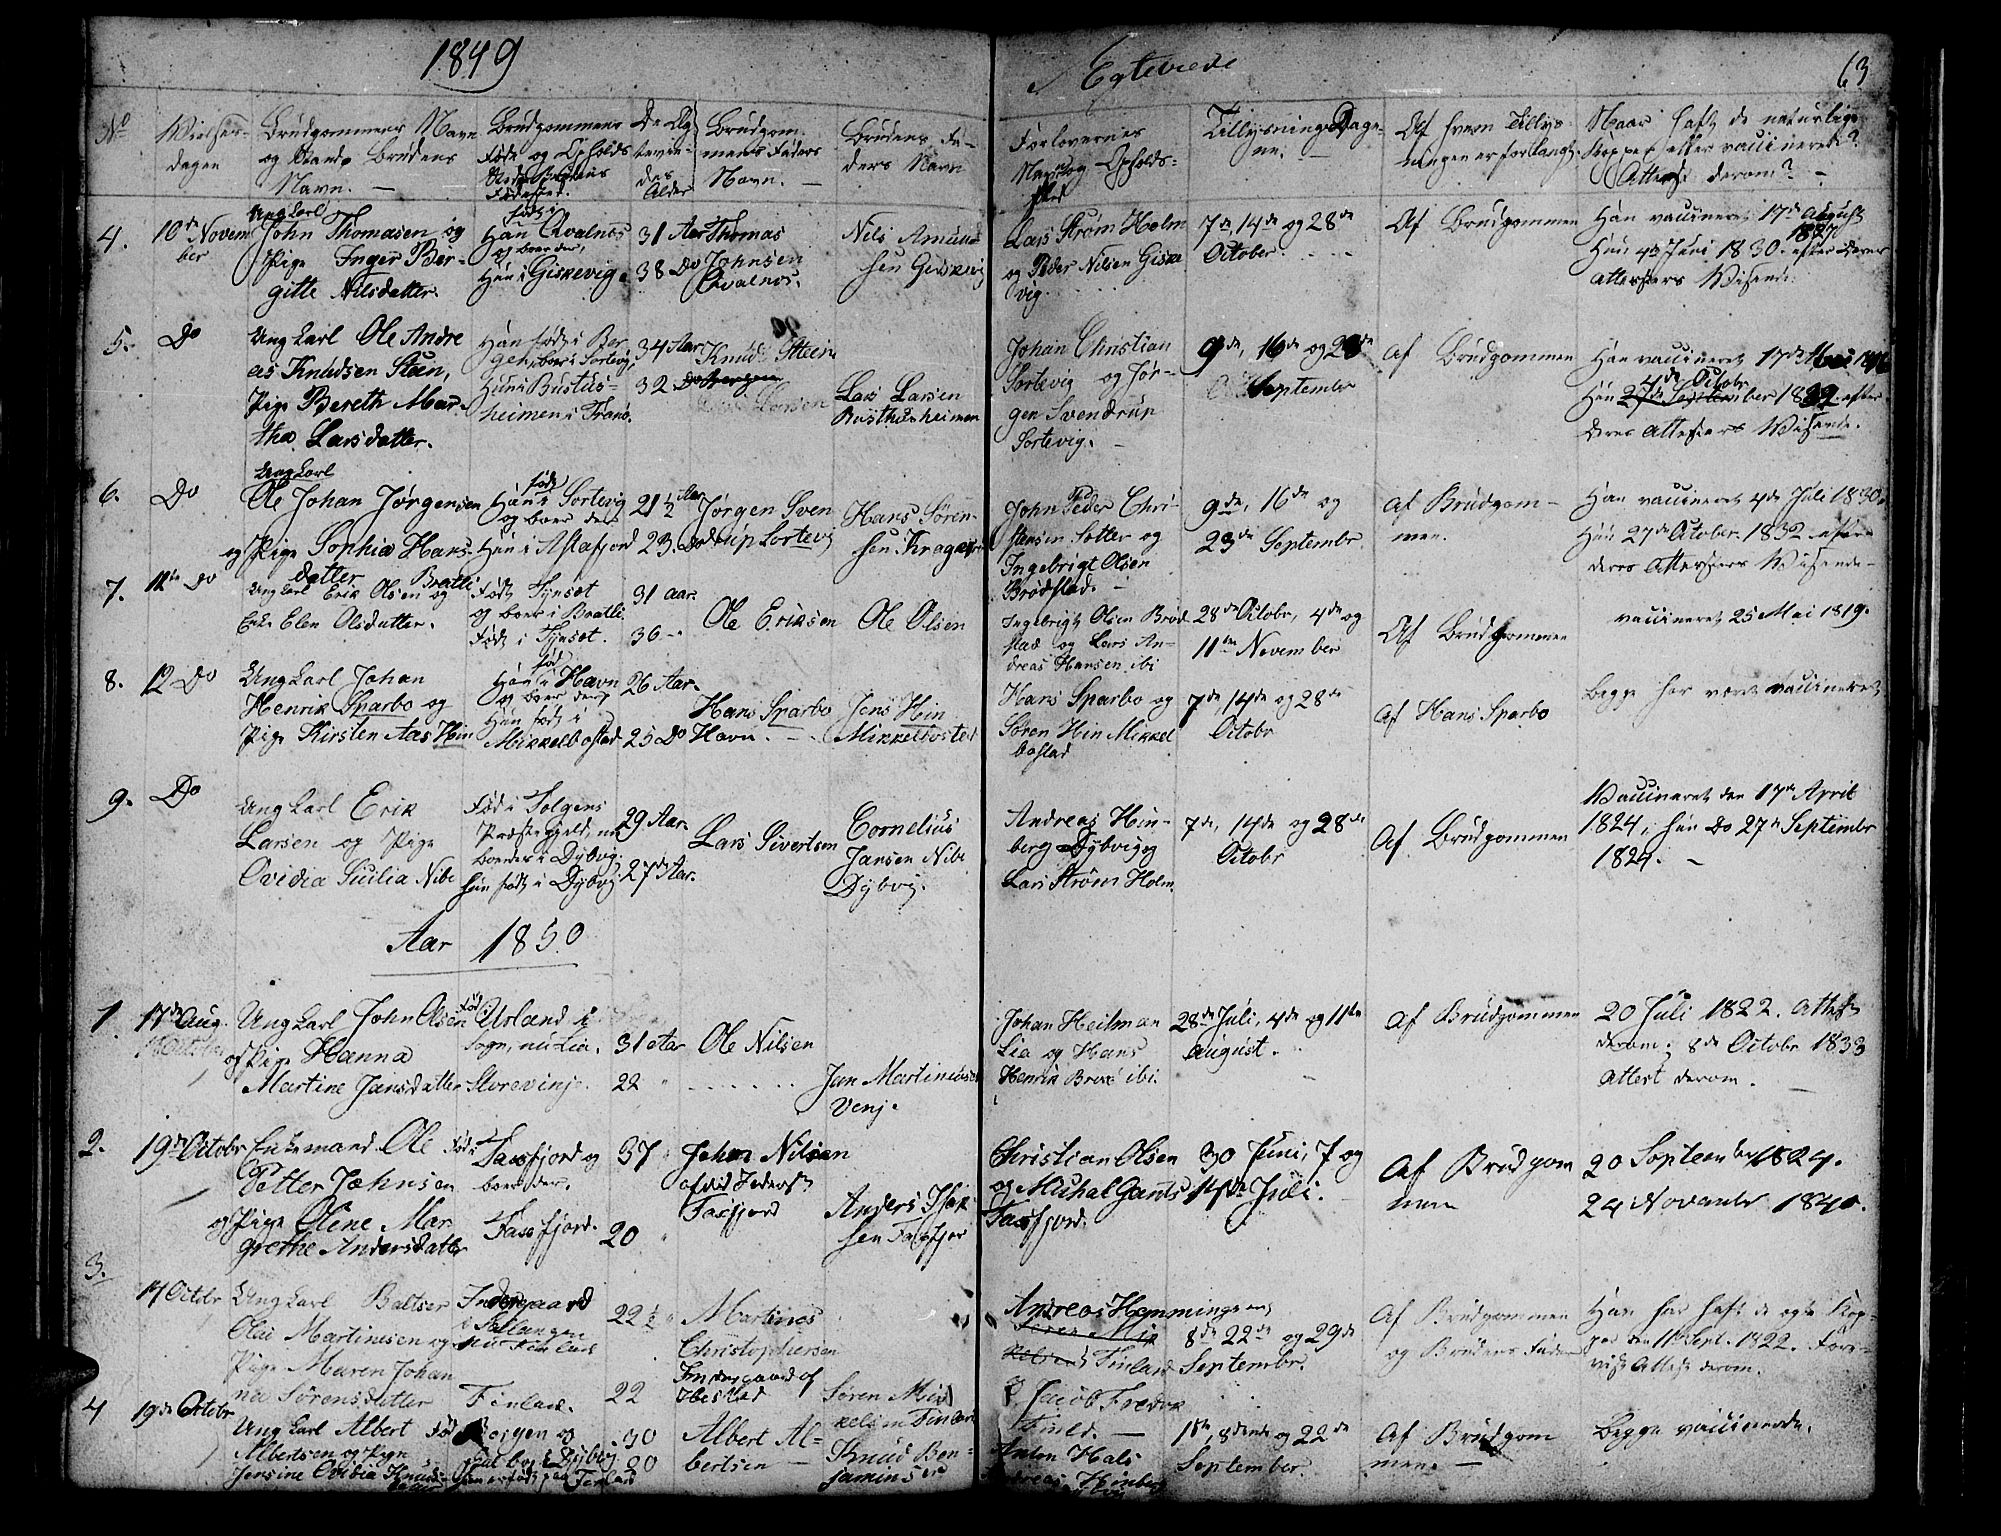 1849
Egteviede
63
No
Vielses-
dagen
Brudgommens Navn
og Stand, Brudens
Navn. —
Brudgommens
Føde og Opholds
Sted. Brudens
Fødested.
De Æg-
tevie-
des
Alder
Brudgom-
mens Faders
Navn. —
Brudens Fa-
ders Navn
Forlovernes
Navn og Opholds-
sted
Tillysnings Dage-
ne. —
Af hvem Tillys-
ningen er forlangt.
Naar haft de naturlige
Kopper eller vaccineret?
Attest derom? —
4.
10de Novem
ber
Ung Karl
John Thomasen og
Pige Inger Ber-
gitte Nilsdatter.
født i
Han Qvalnes
og boer der,
Hun i Giskevig.
31 Aar
38 Do
Thomas
Johnsen
Qvalnes.
Nils Amund
sen Geskevig
Lars Strøm Holm
og Peder Nilsen Giske
vig.
7de, 14de og 28de
October.
Af Brudgommen
Han vaccineret 17de August
1827
Hun 4de Juni 1830. efter deres
Attesters Visende.
5.
Do
Ung Karl Ole Andre
as Knudsen Stein,
Pige Bereth Mar-
tha Larsdatter.
Han født i Ber
gen, boer i Sortevig,
Hun i Bustus-
heimen i Tranø.
34 Aar
32 Do
Knud Stein
Bergen
Lars Larsen
Busthusheimen
Johan Christian
Sortevig og Jør-
gen Svendrup
Sortevig. —
9de, 16de og 23de
September
Af Brudgommen
Han vaccineret 17de
4de Octobr
Hun 27de September 1832. efter
deres Attesters Visende.
6.
Do
Ung Karl
Ole Johan Jørgensen
og Pige Sophia Hans-
datter
født
Han i Sortevig
og boer der
Hun i Astafjord
21½ Aar
23. Do
Jørgen Sven
drup Sortevig
Hans Søren-
sen Kragen
John Peder Chri-
stensen Sotter og
Ingebrigt Olsen
Brødstad. —
9de, 16de og
23de Septembr.
Af Brudgom-
men.
Han vaccineret 4de Juli 1830.
Hun 27de October 1832 efter
deres Attesters Visende-
7.
11te Do
Bratli
Ung Karl Erik Olsen og
Enke Elen Olsdatter.
Født Tynset
og boer i Bratli
Født i Tynset.
31 aar.
36 -
Ole Eriksen
Ole Olsen
Ingebrigt Olsen Brød
stad og Lars An-
dreas Hansen ibi
28de Octobr, 4de og
11te November
Af Brudgommen
vaccineret 25 Mai 1819.
8.
12 Do
Ung Karl Johan
Henrik Sparbo og
Pige Kirsten Aas Hin
født
Han i Havn
og boer der,
Hun født i
Mikkelbostad
26 Aar.
25 Do
Hans Sparbo
Havn. —
Jens Hin
Mikkelbosted
Hans Sparbo og
Søren Hin Mikkel
bostad
7de, 14de og 28de
Octobr
Af Hans Sparbo
Begge har vært vaccineret
9.
Do
Ung Karl Erik
Larsen og Pige
Ovidia Cicilia Nibe
Født i Tolgens
Præstegjeld, nu
boende i Dybvig,
Hun født i Dybvig
29 Aar.
27de Aar.
Lars Sivertsen
Cornelius
Jansen Nibe
Dybvig.
Andreas Hin-
berg Dybvig og
Lars Strøm Holm
7de, 14de og 28de
Octobr
Af Brudgommen
Vaccineret den 17de April
1824, hun Do 27de Septembr
1824. —
Aar 1850
1
17de Aug.
Ung Karl John Olsen
og Pige Hanna
Martine Jansdatter
Født
Urland i
Sogn, nu Lia.
Storevinje.
31 Aar
22 "
Ole Nilsen
Jan Martinussen
Venje
Johan Heilman
Lia og Hans
Henrik Brox ibi.
28de Juli, 4de og 11te
August.
Af Brudgommen
20 Juli 1822. Attest
derom. 8de Octobr 1833
Attest derom. —
2.
19de Octobr
Enkemand Ole
Petter Johnsen
og Pige Olene Mar
grethe Andersdatter
født i
Taasfjord og
boer der.
Tassfjord.
37
20
John Nilsen
Tasfjord
Anders Isak
sen Tasfjor
Christian Olsen
og Michal Gants
Tassfjord.
30 Juni, 7 og
14de Juli.
Af Brudgom
men
20 September 1824.
24 November 1840.
3.
17 Octobr
Ung Karl Baltser
Olai Martinusen og
Pige Maren Johan
na Sørensdatter
Indergaard
i Sallangen
nu Finland
Finland.
22½ "
22
Martinus
Christophersen
Indergaard af
Ibestad
Søren Mik
kelsen Finland
Andreas Hemmingsens
Søren Mik
kelsens Finland
Jacob Fredrik
Finld. —
8de 22de og 29de
Septembr.
Af Brudgommen
og Brudens Fader
Han har haft de egte Kop-
per den 11te Sept. 1822. Fore-
vist Attest derom.
4
19de Octobr
Ung Karl Albert
Albertsen og Pige
Jensine Ovidia Knuds-
datter
Født
Borgen og
boer i Dybvig
Hun er født paa Finland
30
20
Albert Al-
bertsen —
Knud Ben-
jaminsen
Anton Hals
Andreas Hinberg
1ste, 8ende og 22de
September.
Af Brudgom
men. —
Begge vaccinerede.